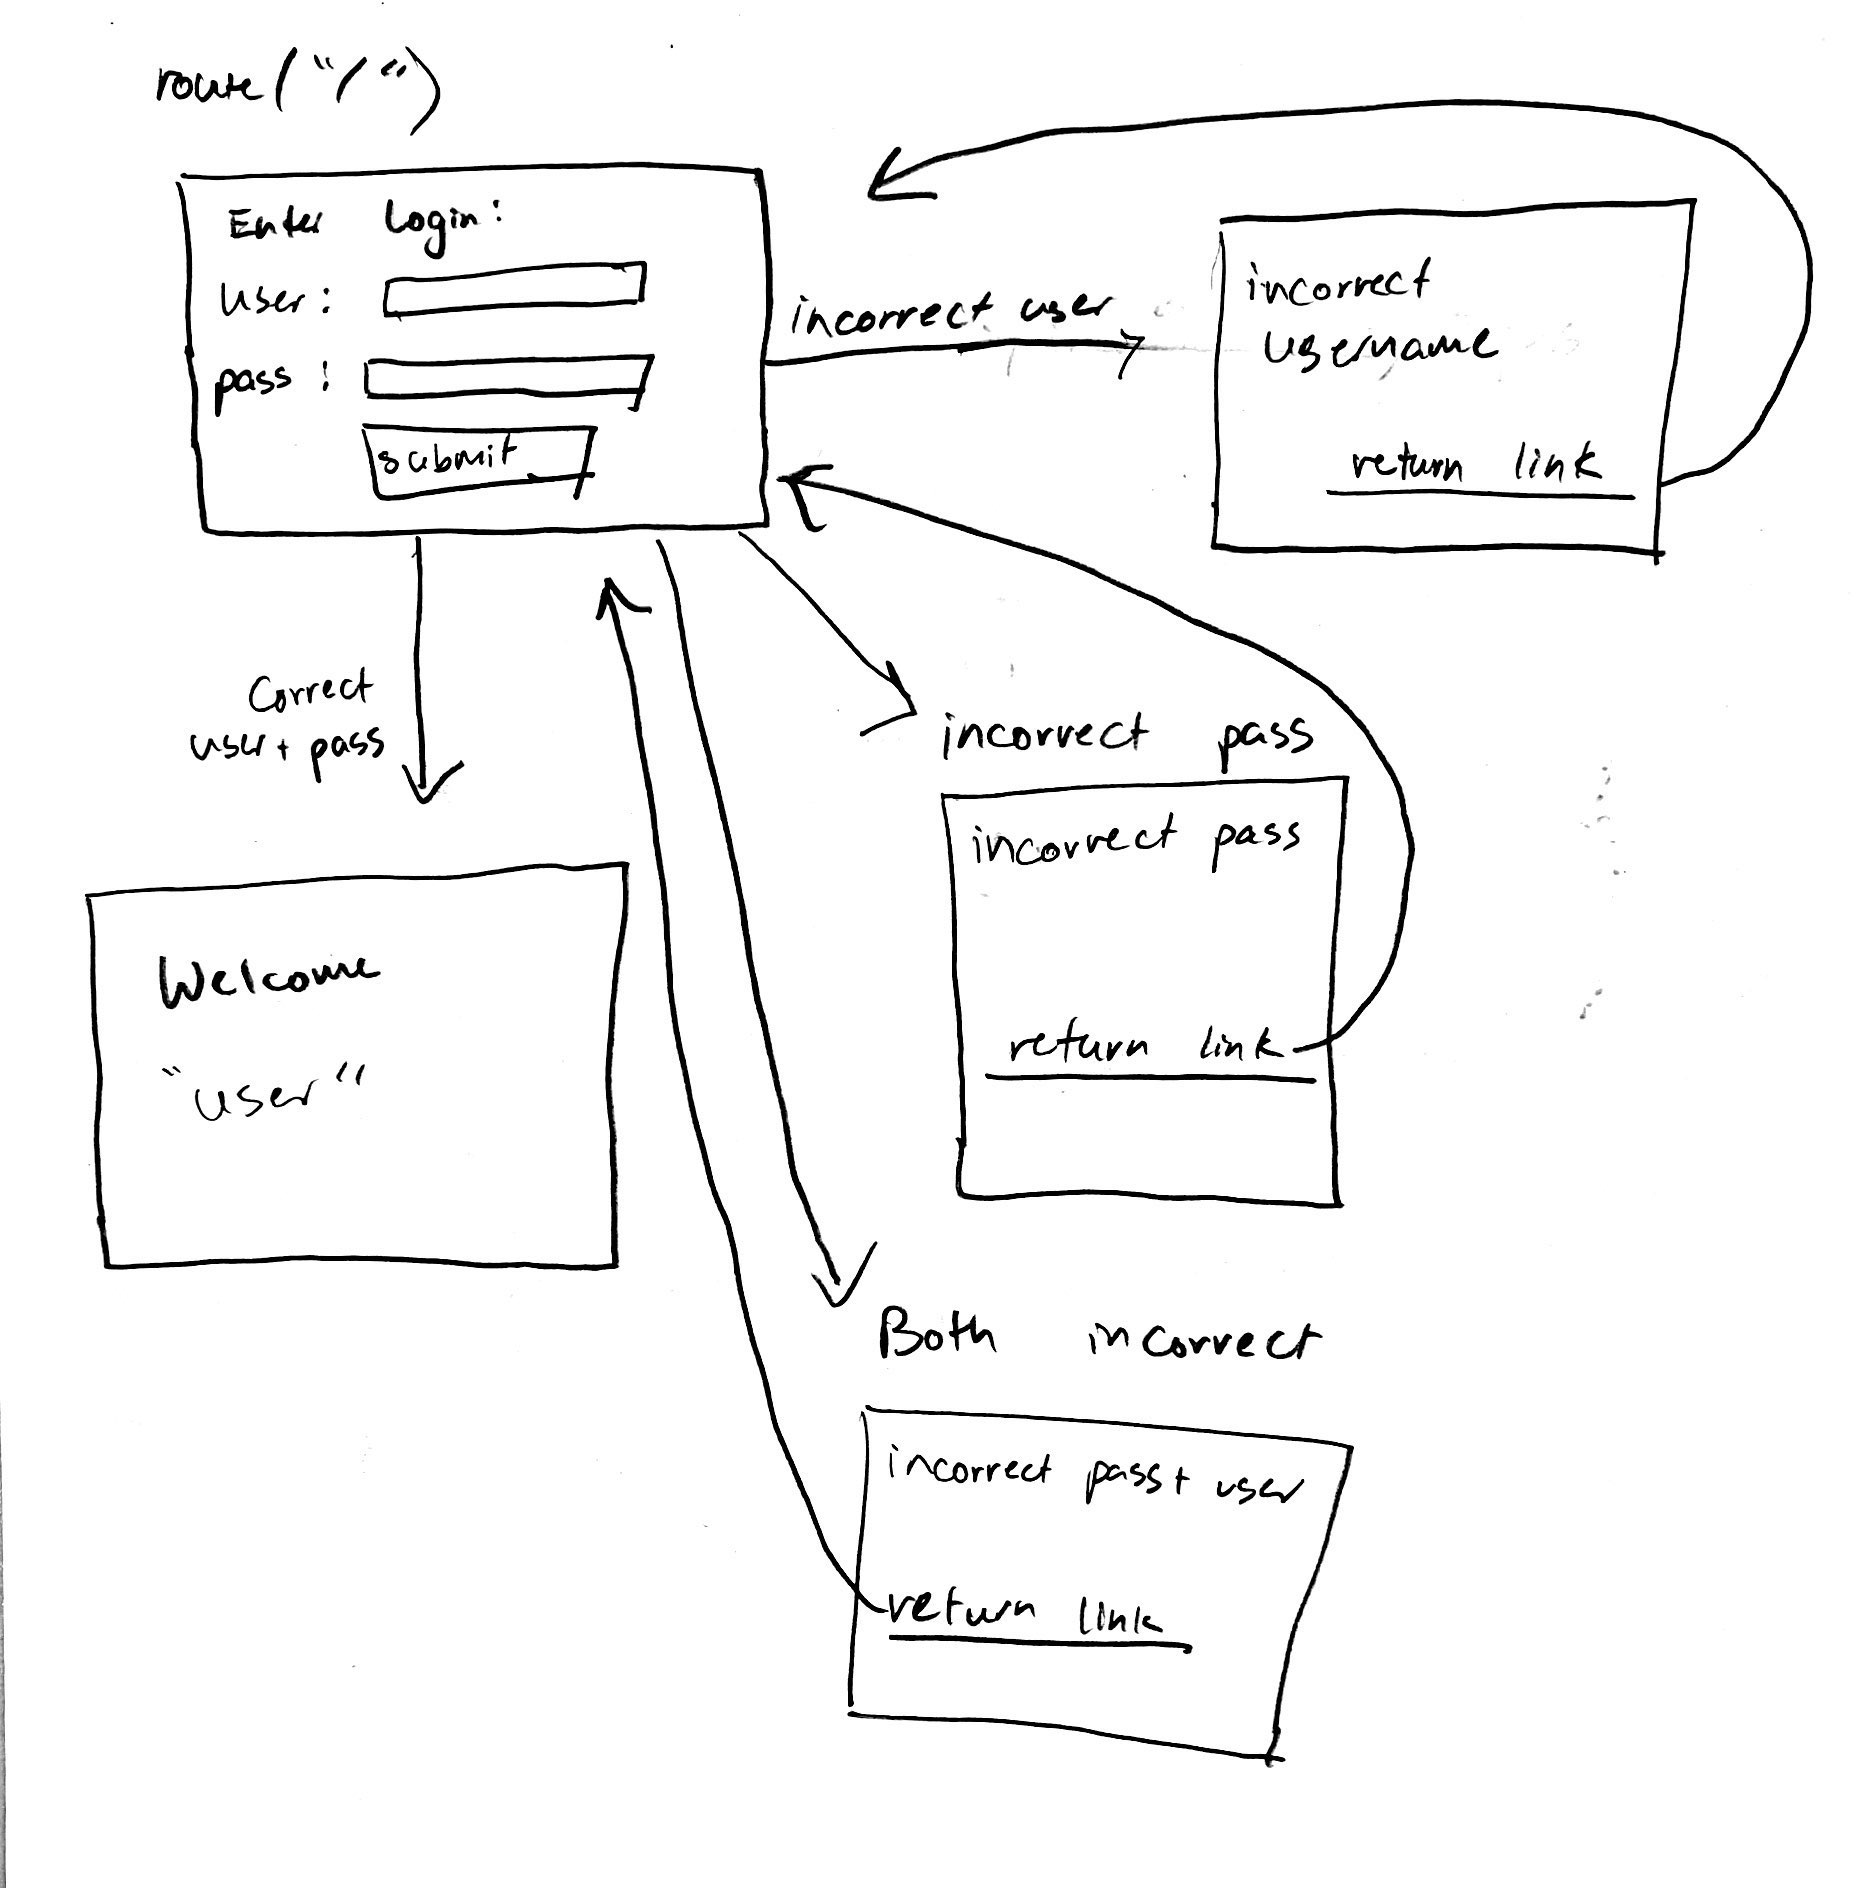 route("/")
Enter Login:
user:
pass:
submit
incorrect user
incorrect
username
return link
Correct
user + pass
incorrect pass
incorrect pass
return link
Welcome
"user"
Both incorrect
incorrect pass + user
return link